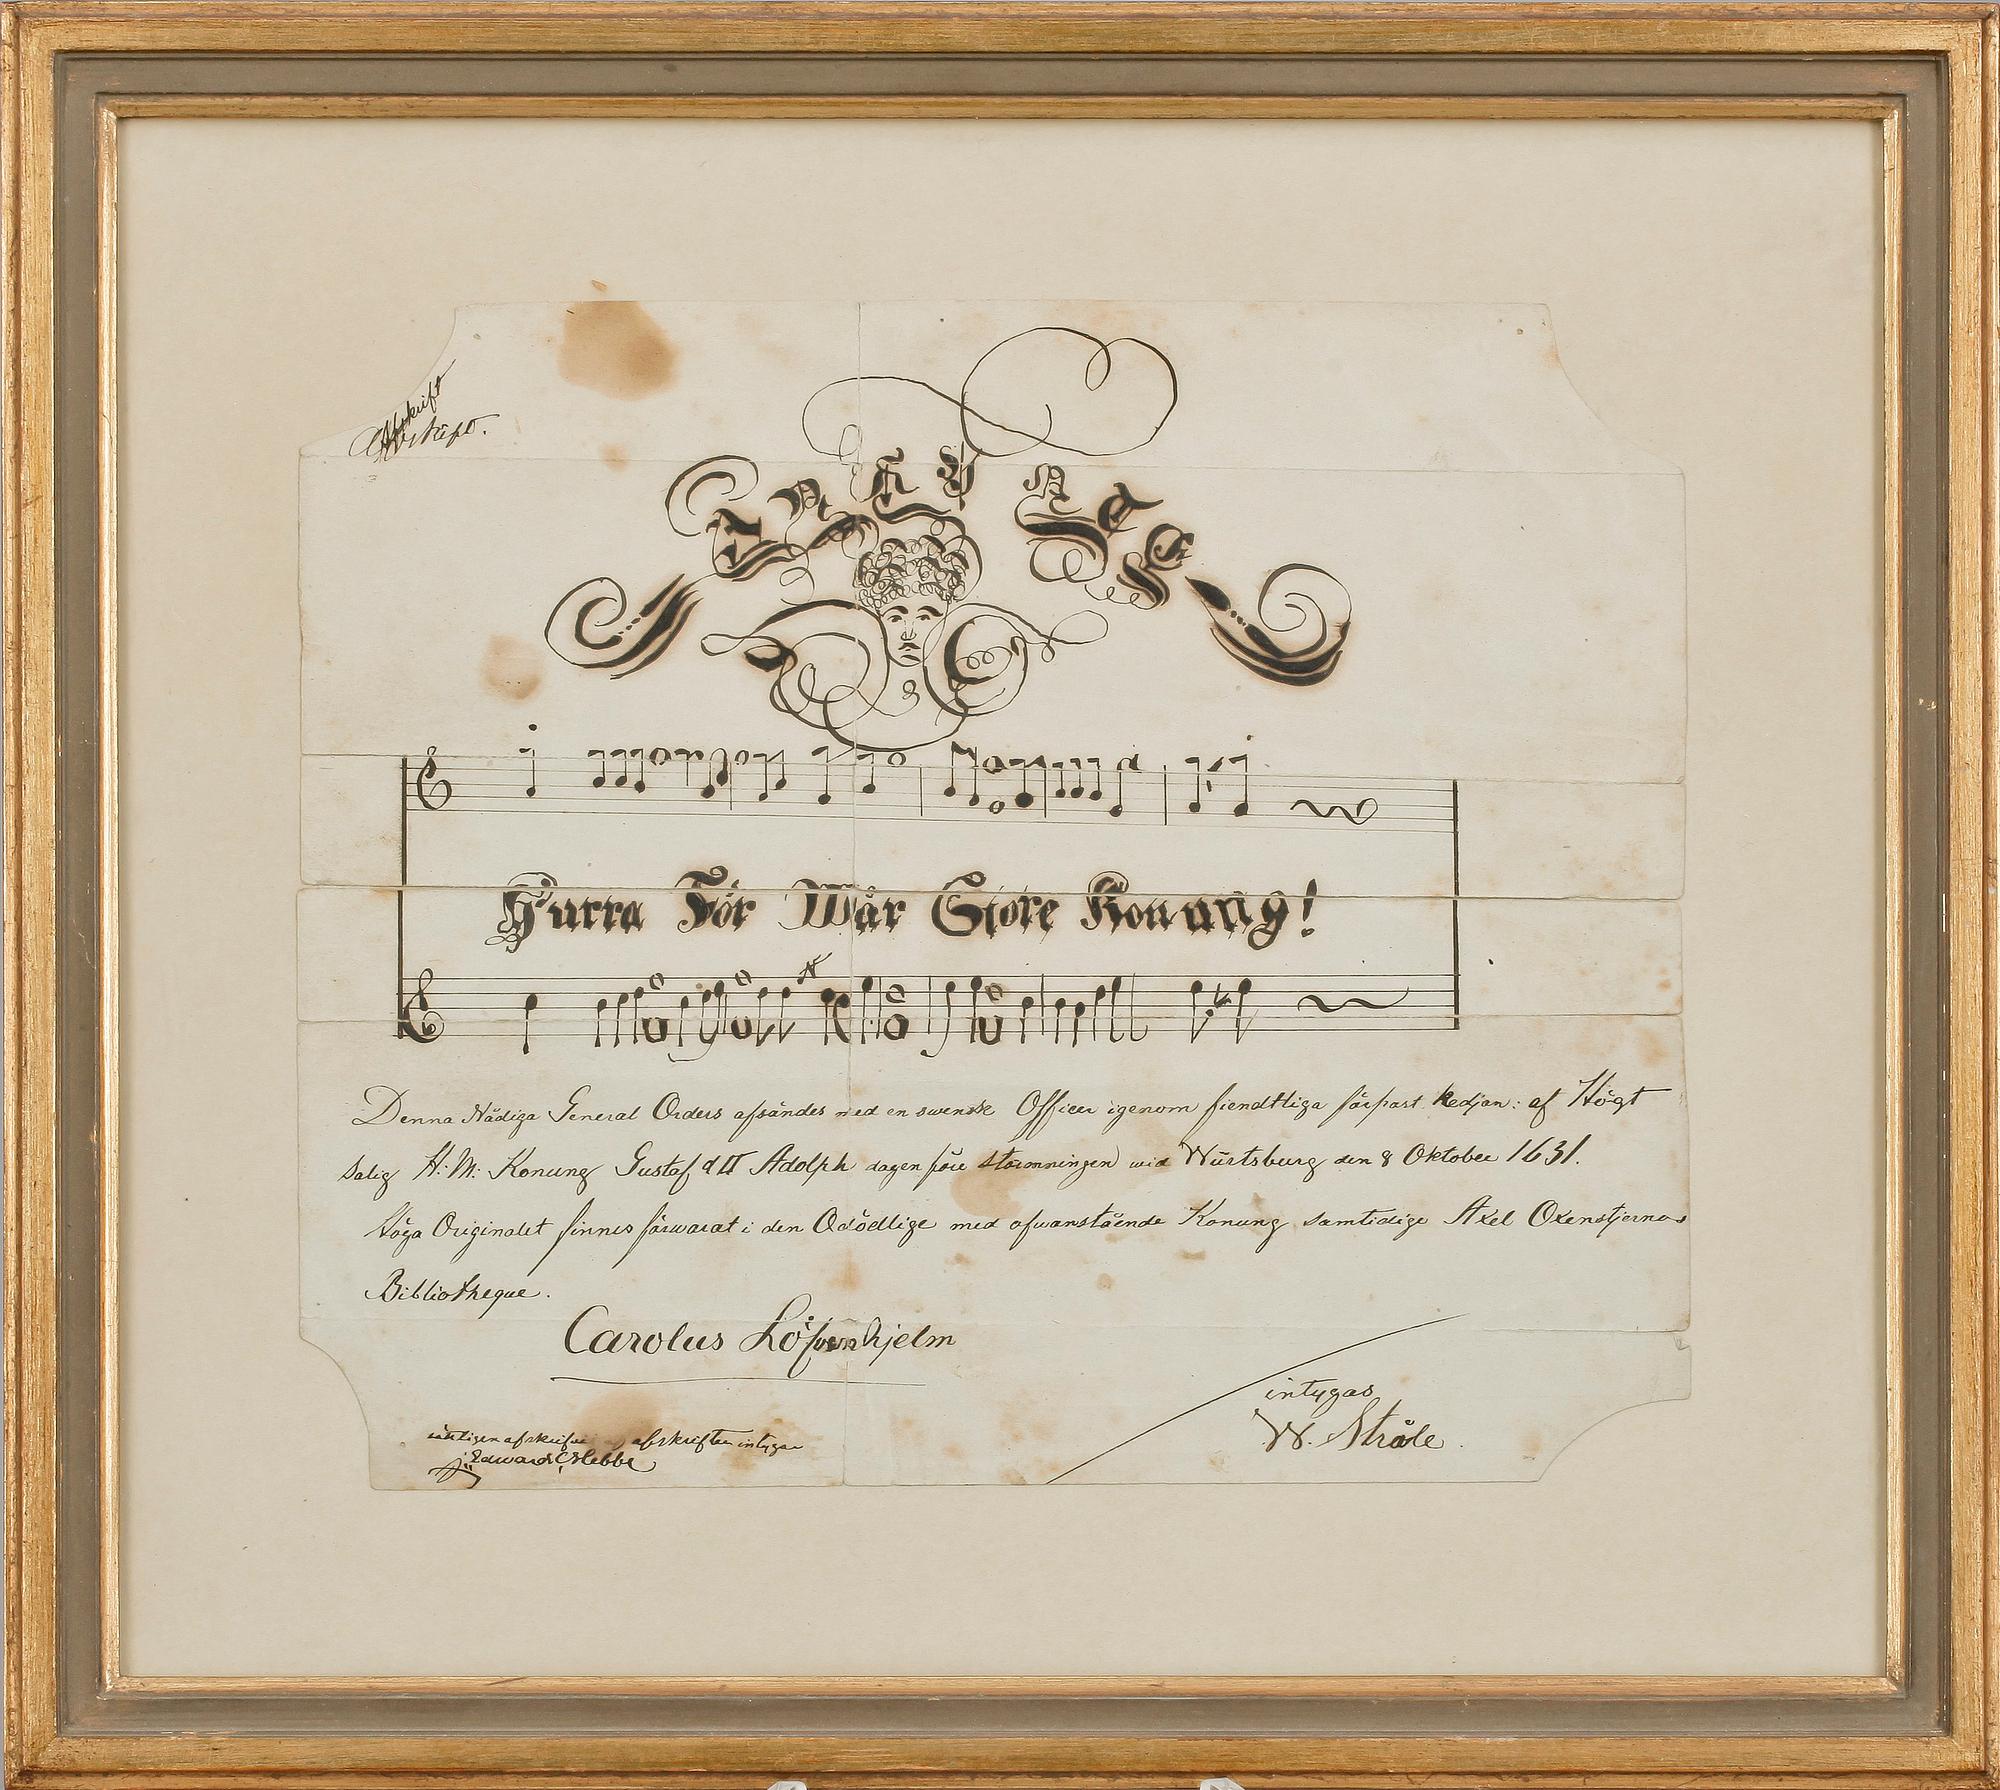 Afskrift
Afskrift.
Hurra För Wår Store Konung!
Denna Nådiga General Orders afsändes med en swensk Officer igenom fiendtliga förpost kedjan: af Högt
Salig H: M: Konung Gustaf d II Adolph dagen före stormningen wid Würtsburg den 8 Oktober 1631.
Höga Originalet finnes förwarat i den Odödlige med ofwanstående Konung samtidige Axel Oxenstjernas
Bibliotheque.
Carolus Löfvenhjelm
intygas
W. Stråle
afskriften intygar
Edward Hebbe